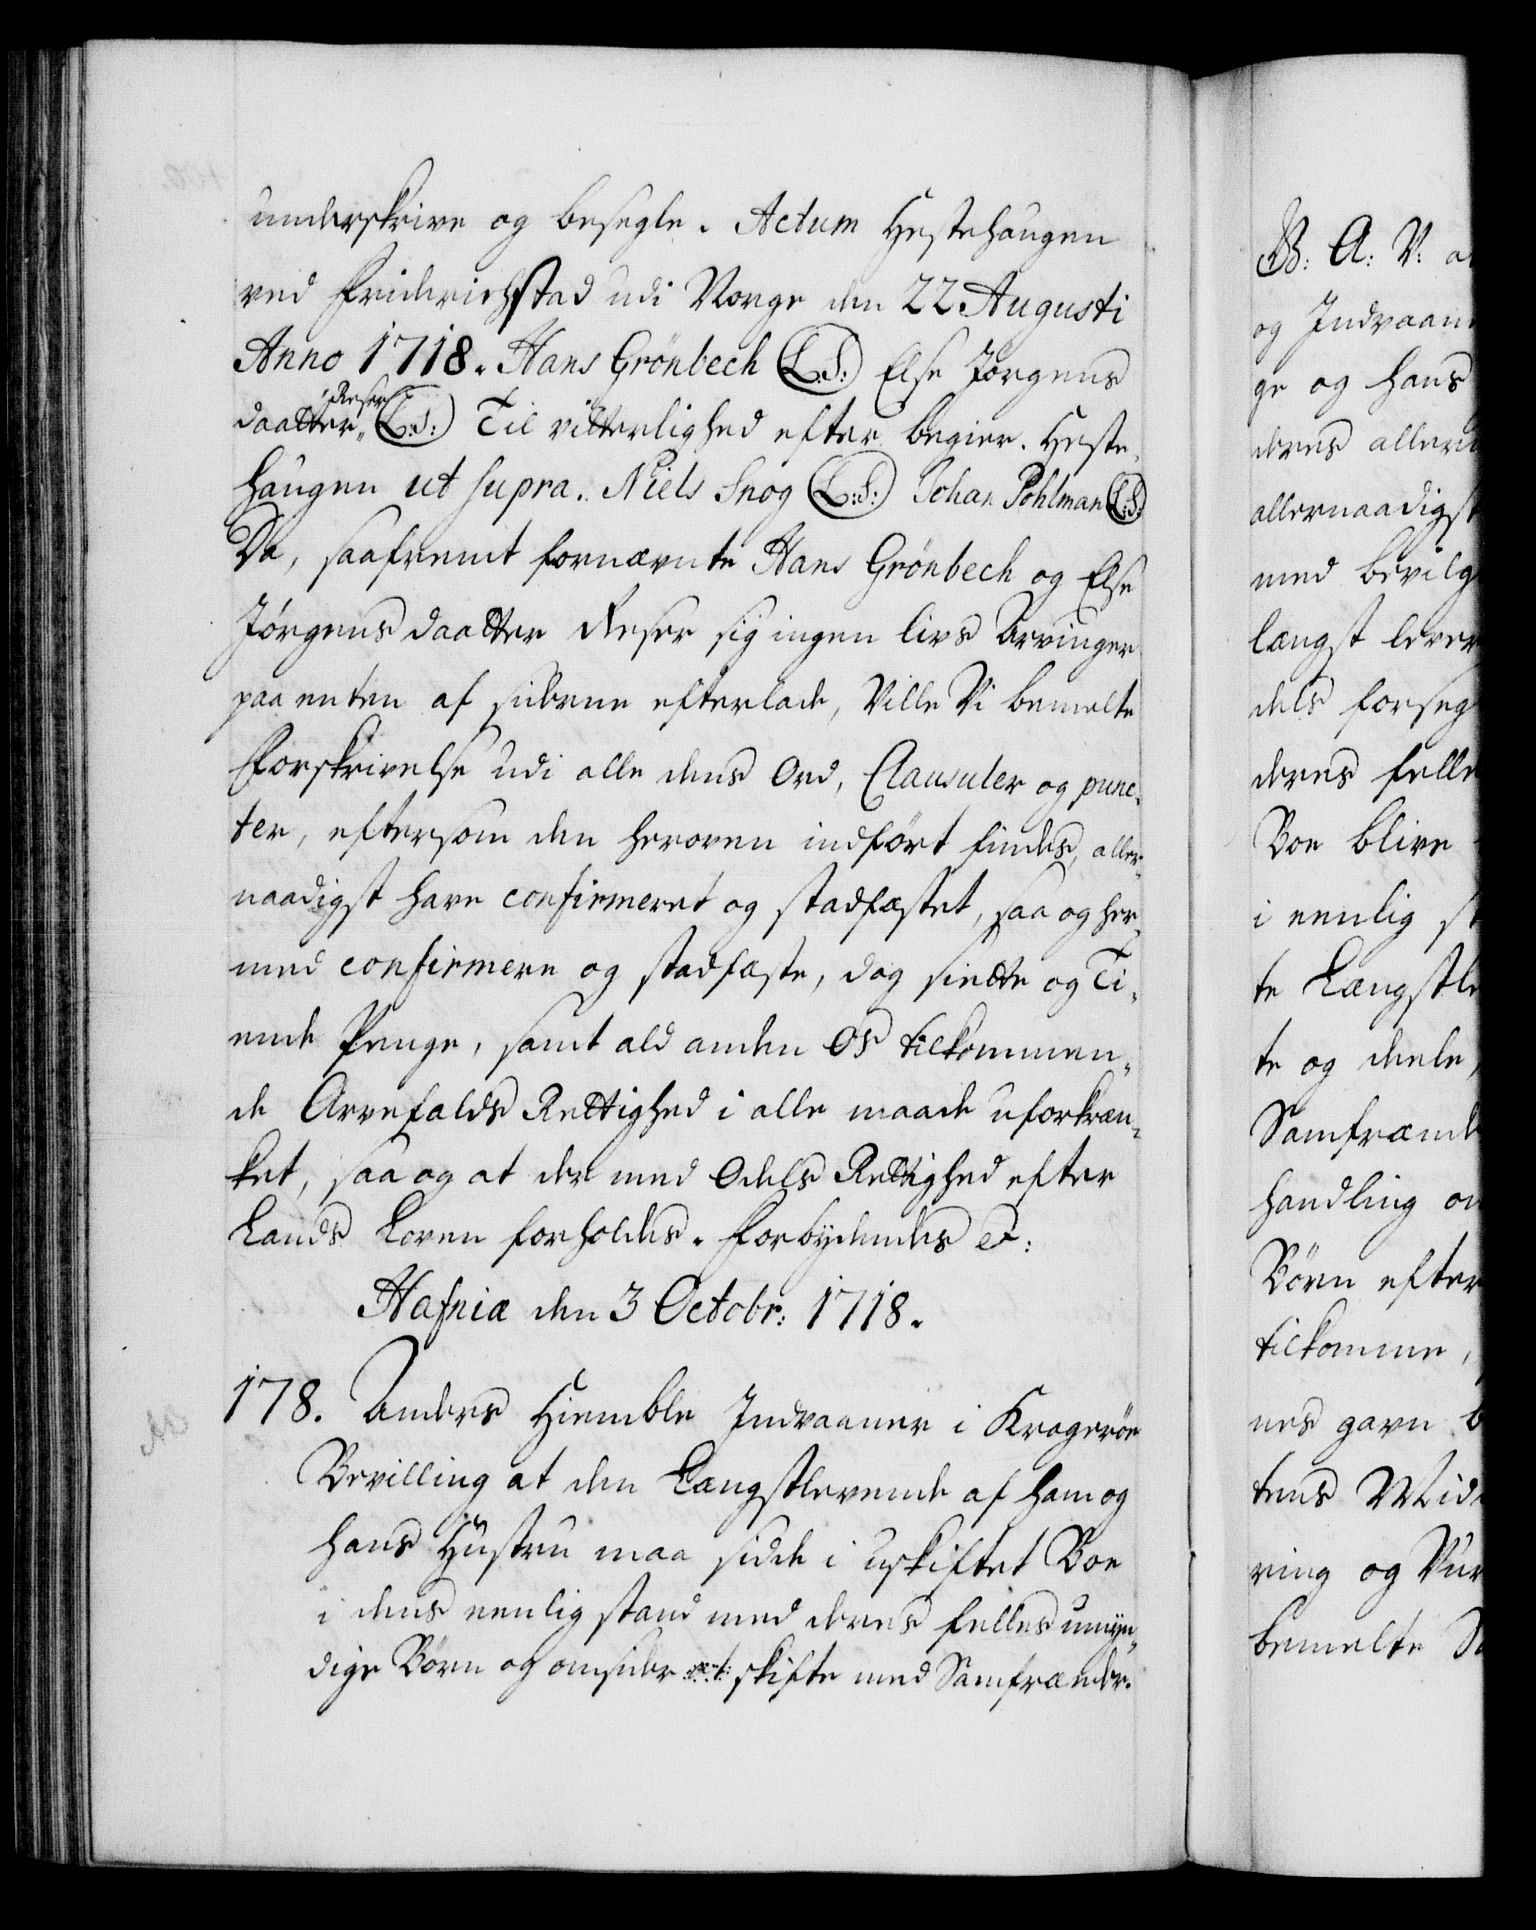 underskrive og besegle. Actum Hestehaugen
ved Friderichstad udi Norge den 22 Augusti
Anno 1718. Hans Grönbech (L.S:) Else Jörgens
daatter Reser (L:S:) Til vitterlighed efter begier. Heste-
haugen ut supra. Niels Snog (L:S:) Johan Pohlman (L:S:)
Da, saafremt fornævnte Hans Grönbech og Else
Jørgens daatter Reser sig ingen livs Arvinger
paa enten af siderne efterlade, Ville Vi bemelte
Forskrivelse udi alle dens Ord, Clausuler og punc-
ter, eftersom den heroven indført findes, aller-
naadigst have confirmeret og stadfæstet, saa og her-
med confirmere og stadfæste, dog siette og Ti-
ende Penge, samt ald anden Os tilkommen-
de Arvefalds Rettighed i alle maade uforkræn-
ket, saa og at der med Odels Rettighed efter
Lands Loven forholdes. Forbydendes et:
Hafniæ den 3 Octobr: 1718.
178. Anders Hiemble Indvaaner i Krageröe
Bevilling at den Længstlevende af ham og
hans Hustru maa sidde i uskiftet Boe
i dens eenlig stand med deres felles umyn-
dige Börn og omsider skifte med Samfrænder.
B: A: V: a
og Indvaan
ge og hans
deres alleru
allernaadigst
med bevilg
længst lever
dels forseg
deres felle
Boe blive
i eenlig st
te Længstle
te og deele,
Samfrænde
handling on
Börn efter
tilkomme,
nes gavn b
tens Mid
ring og Vur
bemelte S